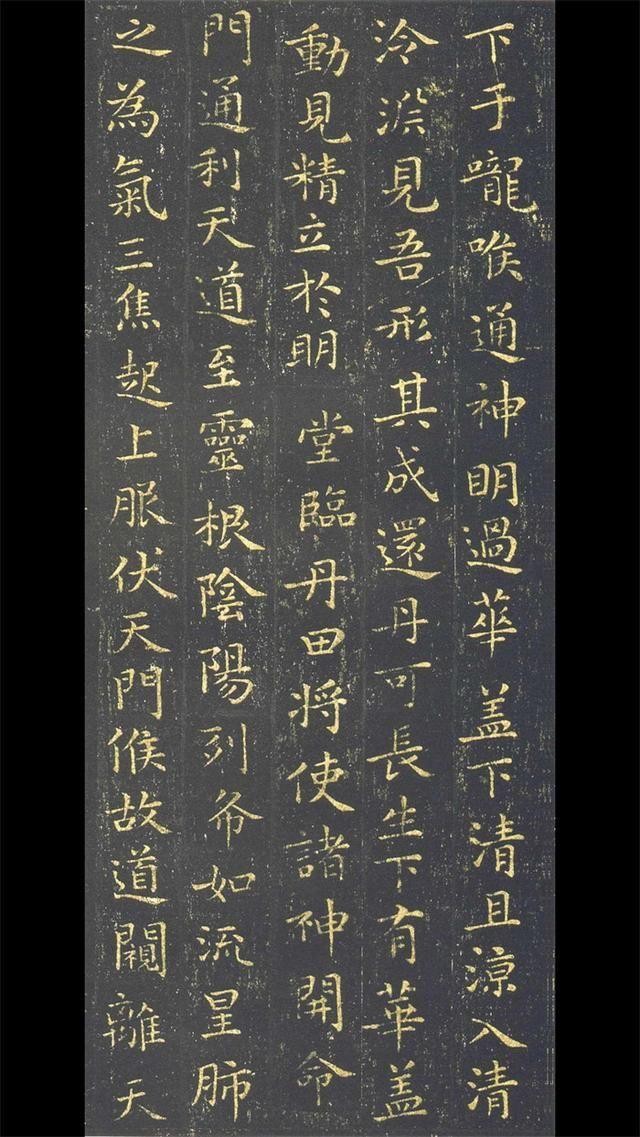 下于嚨喉通神明過華盖下清且涼入清
泠淵見吾形其成還丹可長生下有華盖
動見精立於明堂臨丹田將使諸神開命
門通利天道至靈根陰陽列布如流星肺
之為氣三焦起上服伏天門候故道闚離天